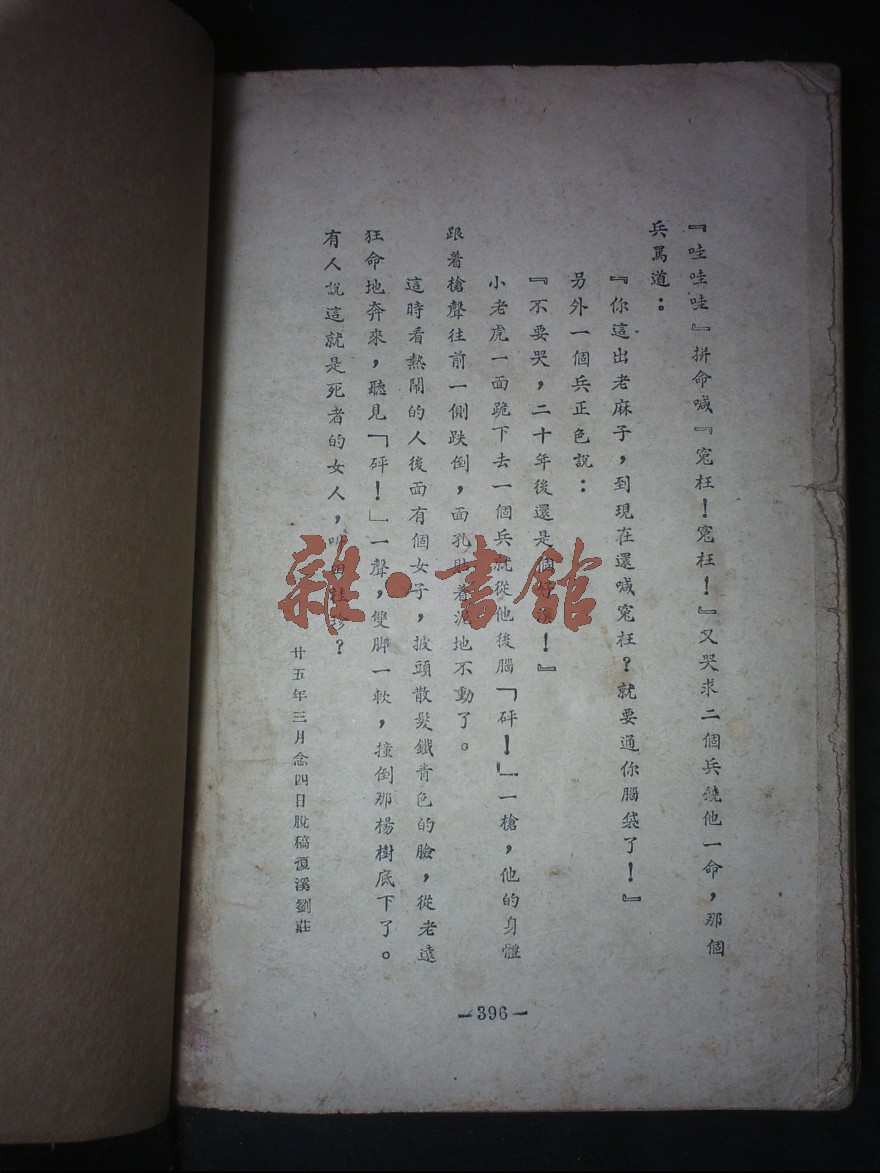 『哇哇哇』拼命喊『寃枉!寃枉!』又哭求二個兵饒他一命,那個
兵罵道:
『你這出老麻子,到現在還喊寃枉?就要通你腦袋了!』
另外一個兵正色說:
『不要哭,二十年後還是個好漢!』
小老虎一面跪下去一個兵就從他後腦「砰!」一槍,他的身體
跟着槍聲往前一側跌倒,面孔貼着泥地不動了。
這時看熱鬧的人後面有個女子,披頭散髮鐵青色的臉,從老遠
狂命地奔來,聽見「砰!」一聲,雙脚一軟,撞倒那楊樹底下了。
有人說這就是死者的女人,珍?
廿五年三月念四日脫稿 溪劉莊
—396—
雜·書館